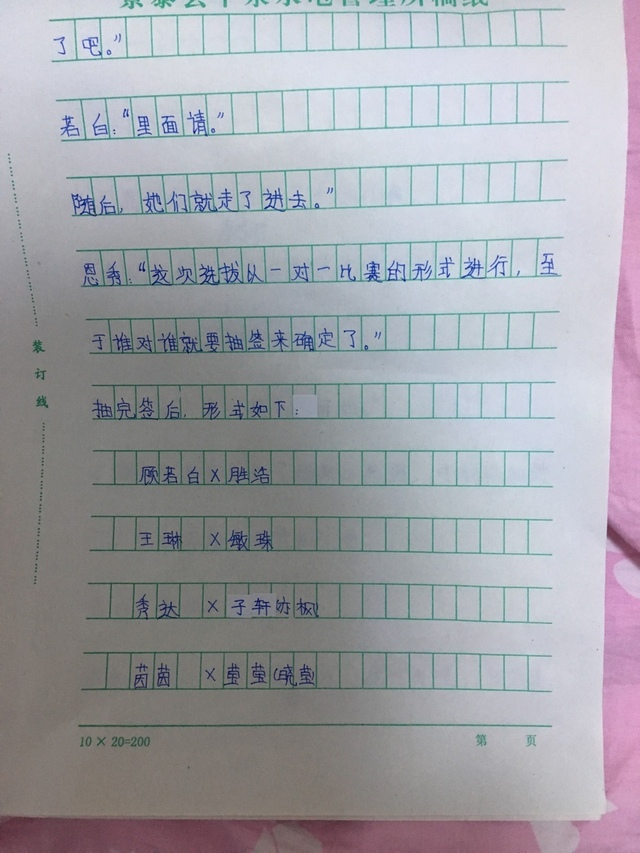 了吧。”
若白：“里面请。”
随后，她们就走了进去。”
恩秀：“这次选拔以一对一比赛的形式进行，至
于谁对谁就要抽签来确定了。”
抽完签后，形式如下：
顾若白×胜浩
王琳 ×敏珠
秀达 ×子轩
茵茵 ×莹莹(晓莹
装订线
10×20=200
第 页